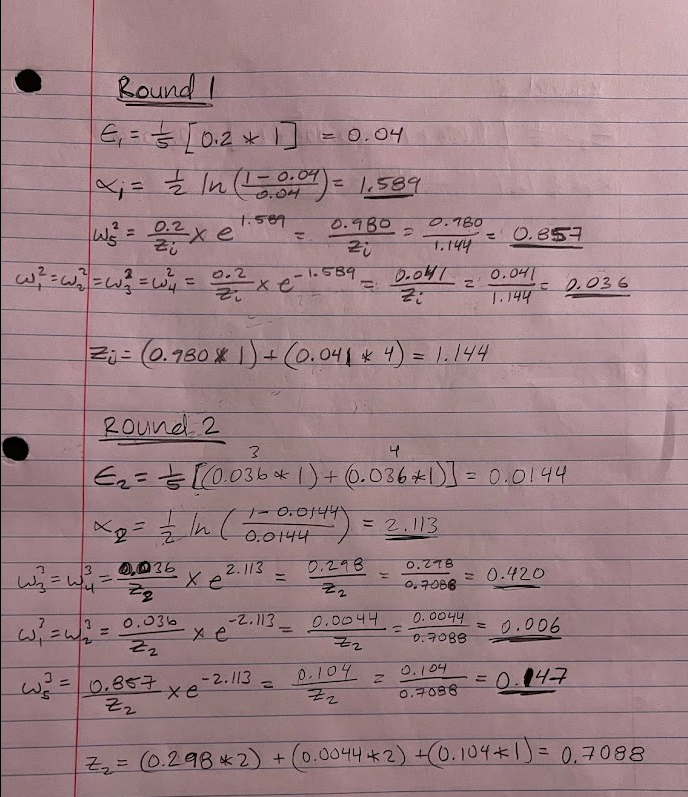 Round 1
ϵ₁ = 1/5 [0.2 * 1] = 0.04
αᵢ = 1/2 ln (1-0.04/0.04) = 1.589
ω₅² = 0.2/Zᵢ × e^1.589 = 0.980/Zᵢ = 0.980/1.144 = 0.857
ω₁² = ω₂² = ω₃² = ω₄² = 0.2/Zᵢ × e^-1.589 = 0.041/Zᵢ = 0.041/1.144 = 0.036
Zᵢ = (0.980 * 1) + (0.041 * 4) = 1.144
Round 2
3 4
ϵ₂ = 1/5 [(0.036 * 1) + (0.036 * 1)] = 0.0144
α₂ = 1/2 ln (1-0.0144/0.0144) = 2.113
ω₃³ = ω₄³ = 0.036/Z₂ × e^2.113 = 0.298/Z₂ = 0.298/0.7088 = 0.420
ω₁³ = ω₂³ = 0.036/Z₂ × e^-2.113 = 0.0044/Z₂ = 0.0044/0.7088 = 0.006
ω₅³ = 0.857/Z₂ × e^-2.113 = 0.104/Z₂ = 0.104/0.7088 = 0.147
Z₂ = (0.298 * 2) + (0.0044 * 2) + (0.104 * 1) = 0.7088